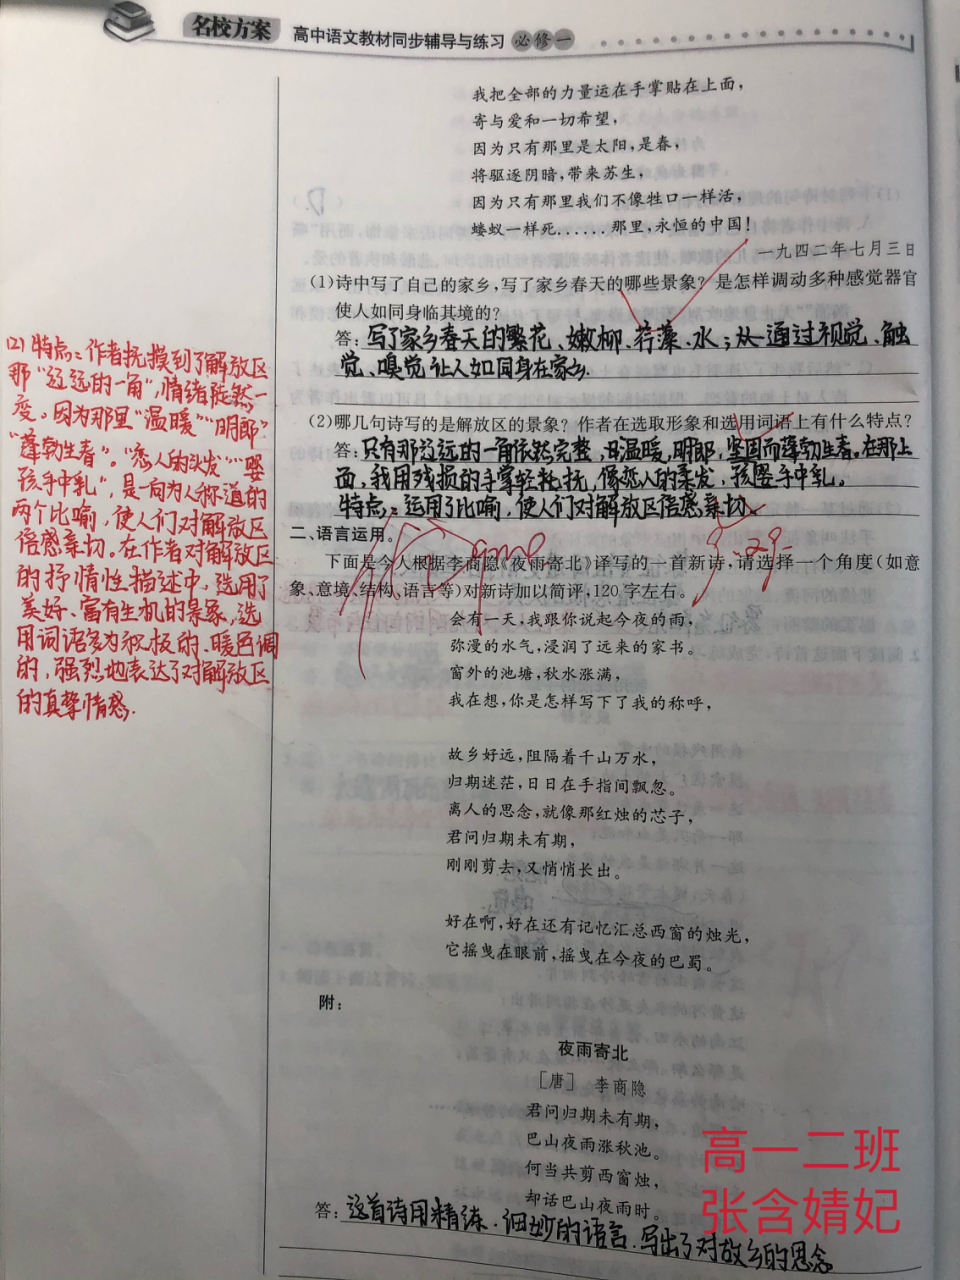 名校方案 高中语文教材同步辅导与练习 必修一
我把全部的力量运在手掌贴在上面，
寄与爱和一切希望，
因为只有那里是太阳，是春，
将驱逐阴暗，带来苏生，
因为只有那里我们不像牲口一样活，
蝼蚁一样死……那里，永恒的中国！
一九四二年七月三日
(1)诗中写了自己的家乡，写了家乡春天的哪些景象？是怎样调动多种感觉器官
使人如同身临其境的？
答：写了家乡春天的繁花、嫩柳、荇藻、水；从通过视觉、触
觉、嗅觉让人如同身在家乡.
(2)哪几句诗写的是解放区的景象？作者在选取形象和选用词语上有什么特点？
答：只有那辽远的一角依然完整，温暖，明朗，坚固而蓬勃生春。在那上
面，我用残损的手掌轻抚，像恋人的柔发，孩婴手中乳。
特点：运用了比喻，使人们对解放区倍感亲切.
(2)特点：作者抚摸到了解放区
那“辽远的一角”，情绪陡然一
度。因为那里“温暖”“明朗”
“蓬勃生春”。“恋人的头发”“婴
孩手中乳”，是一向为人称道的
两个比喻，使人们对解放区
倍感亲切。在作者对解放区
的抒情性描述中，选用了
美好、富有生机的景象，选
用词语多为积极的、暖色调
的，强烈地表达了对解放区
的真挚情感.
9.29
二、语言运用。
下面是今人根据李商隐《夜雨寄北》译写的一首新诗，请选择一个角度（如意
象、意境、结构、语言等）对新诗加以简评，120字左右。
会有一天，我跟你说起今夜的雨，
弥漫的水气，浸润了远来的家书。
窗外的池塘，秋水涨满，
我在想，你是怎样写下了我的称呼，
故乡好远，阻隔着千山万水，
归期迷茫，日日在手指间飘忽。
离人的思念，就像那红烛的芯子，
君问归期未有期，
刚刚剪去，又悄悄长出。
好在啊，好在还有记忆汇总西窗的烛光，
它摇曳在眼前，摇曳在今夜的巴蜀。
附：
夜雨寄北
［唐］ 李商隐
君问归期未有期，
巴山夜雨涨秋池。
何当共剪西窗烛，
却话巴山夜雨时。
答：这首诗用精练、细妙的语言，写出了对故乡的思念
高一二班
张含婧妃